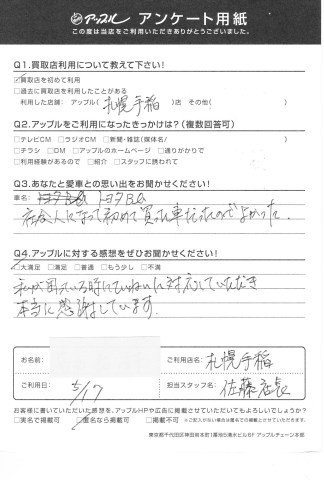 アップル アンケート用紙
この度は当店をご利用いただきありがとうございました。
Q1.買取店利用について教えて下さい!
☑買取店を初めて利用
□過去に買取店を利用したことがある
利用した店舗: アップル( 札幌手稲 )店 その他( )
Q2.アップルをご利用になったきっかけは?(複数回答可)
□テレビCM □ラジオCM □新聞・雑誌(媒体名/ )
□チラシ □DM □アップルのホームページ □通りがかりで
□利用経験があるので □紹介 □スタッフに誘われて
Q3.あなたと愛車との思い出をお聞かせください!
車名: トヨタ
社会人になって初めて買った車だったのでよかった.
Q4.アップルに対する感想をぜひお聞かせください!
☑大満足 □満足 □普通 □もう少し □不満
私が困っている時にていねいに対応していただき
本当に感謝しています.
お名前:
ご利用店名: 札幌手稲
ご利用日: 5/17
担当スタッフ名: 佐藤店長
お客様に書いていただいた感想を、アップルHPや広告に掲載させていただいてもよろしいでしょうか?
□実名で掲載可 ☑匿名なら掲載可 □掲載不可 ※ご記入がない場合は匿名での掲載とさせていただきます。
東京都千代田区神田鍛冶町1番地5清水ビル6F アップルチェーン本部